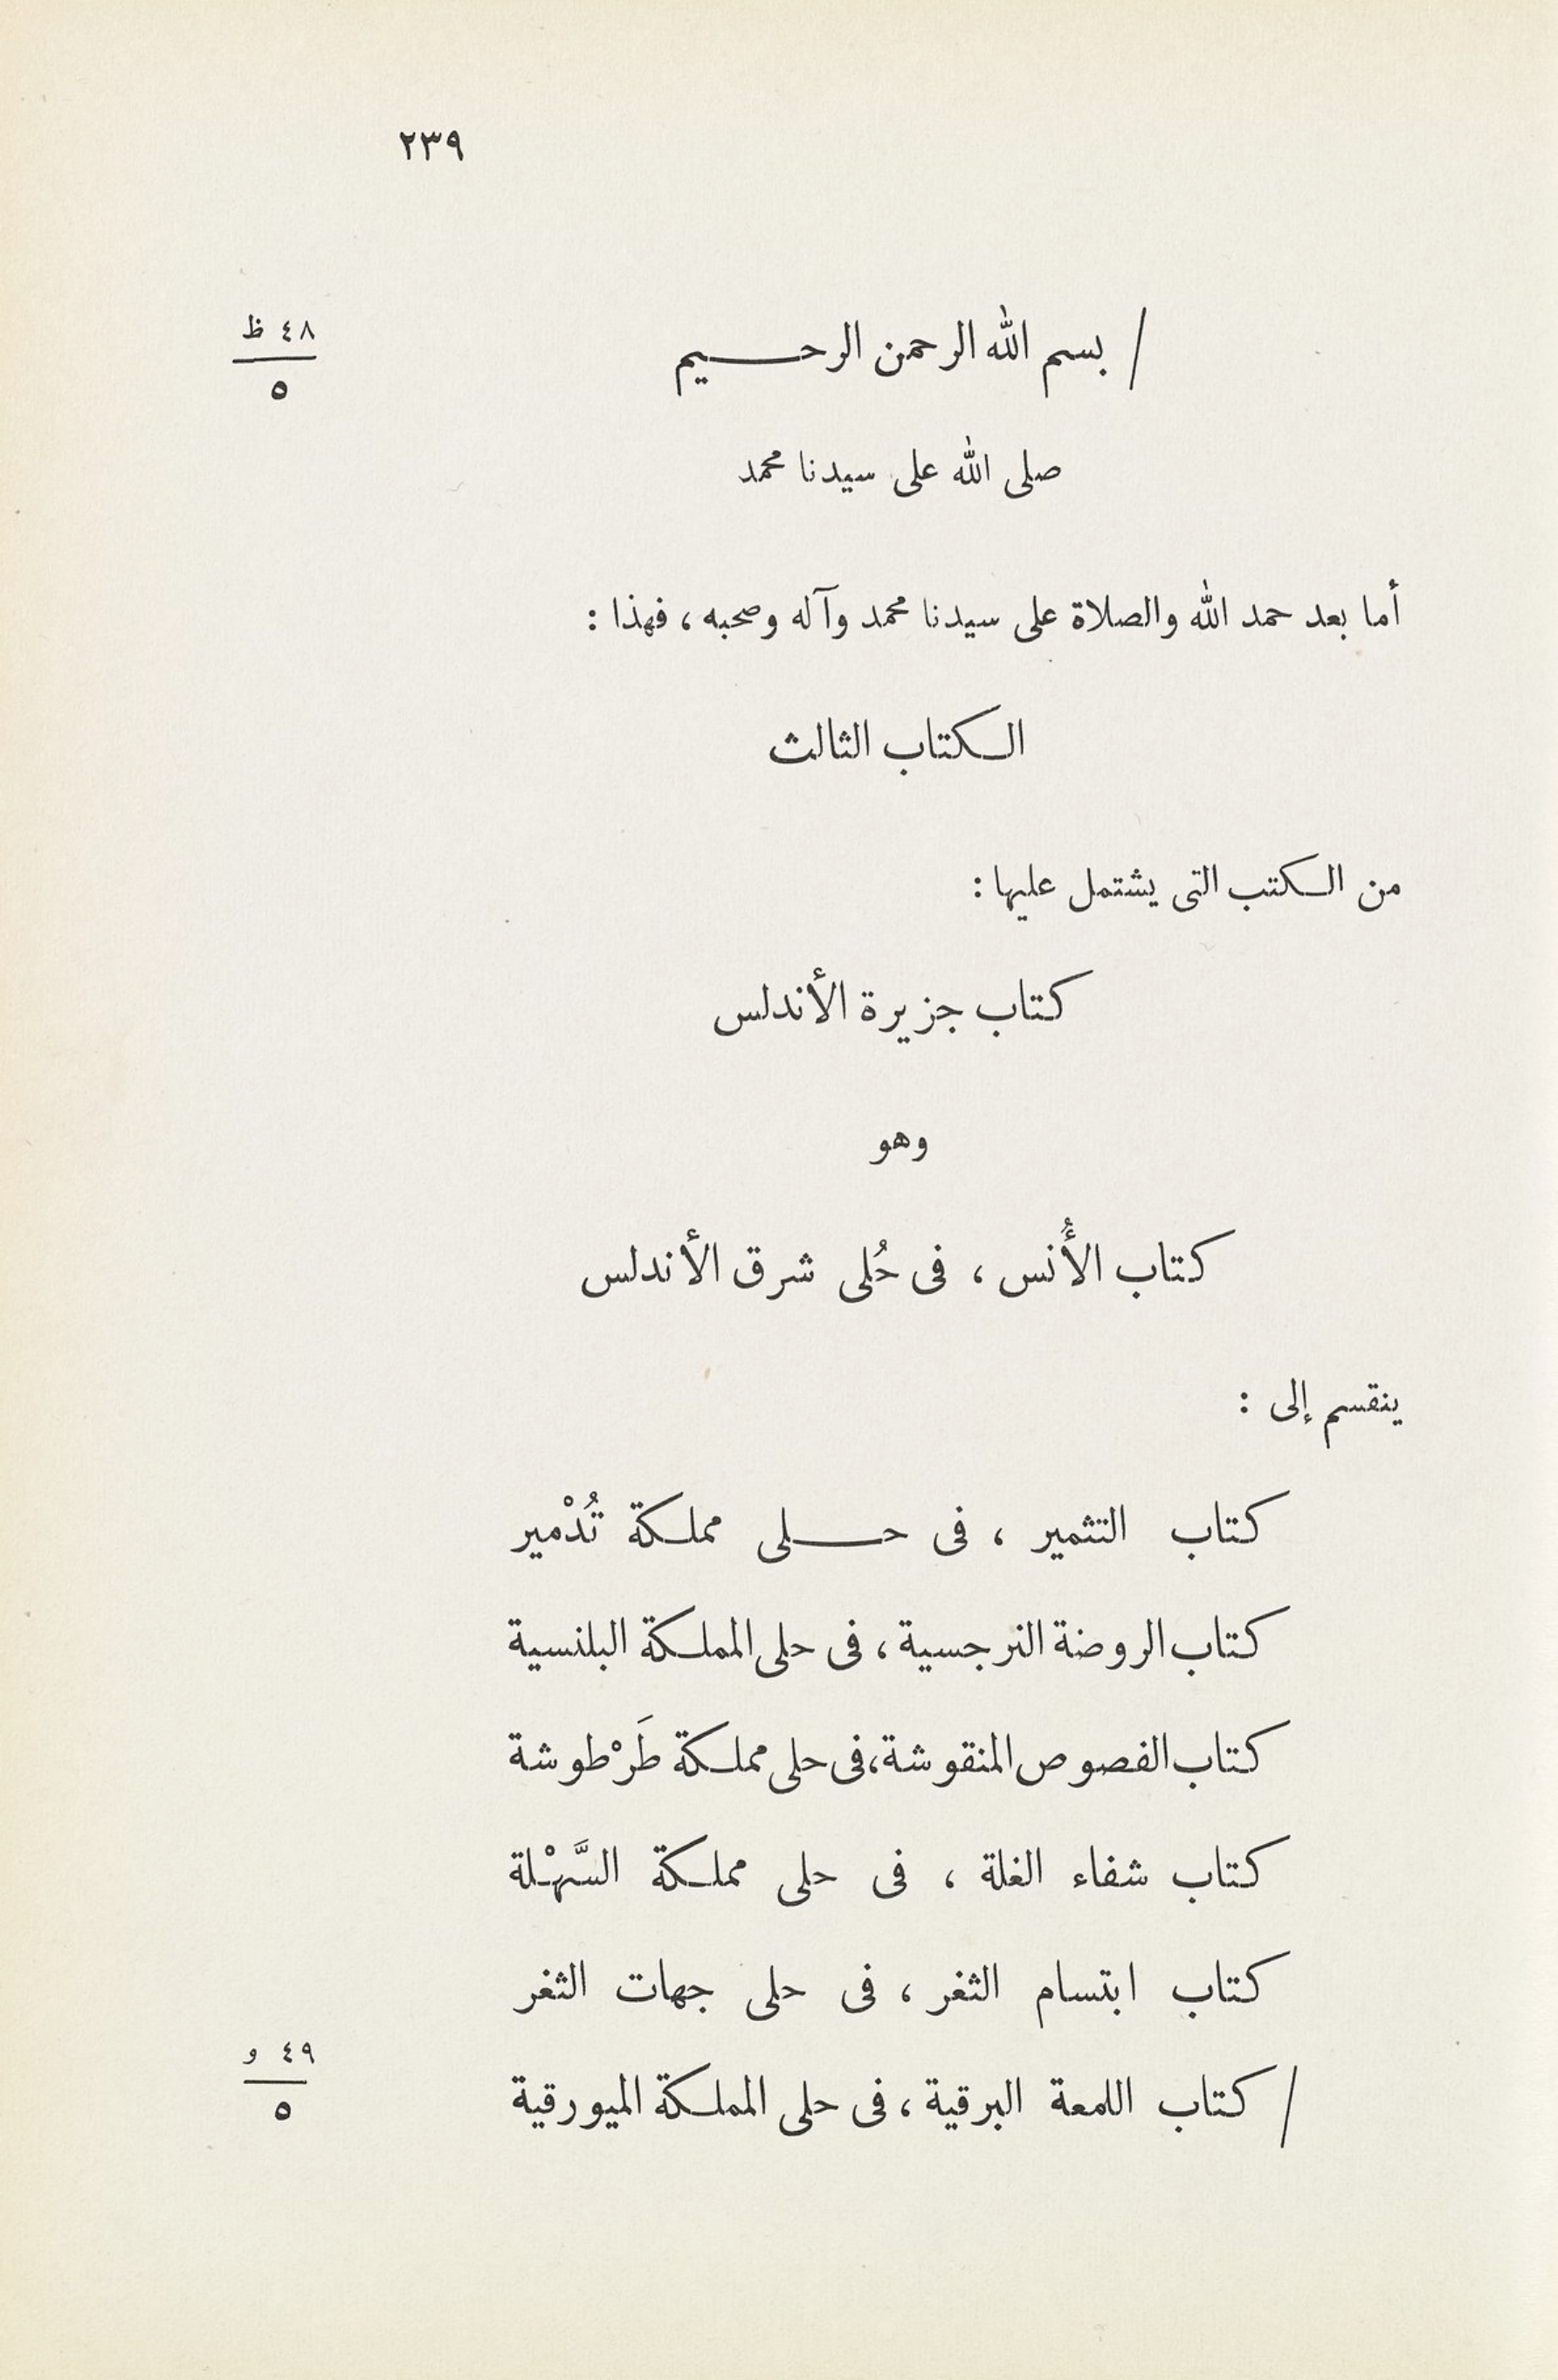 ٢٣٩
/ بسم الله الرحمن الرحـــيم
٤٨ ظ
٥
صلى الله على سيدنا محمد
أما بعد حمد الله والصلاة على سيدنا محمد وآله وصحبه ، فهذا :
الكتاب الثالث
من الكتب التى يشتمل عليها :
كتاب جزيرة الأندلس
وهو
كتاب الأُنس ، فى حُلى شرق الأندلس
ينقسم إلى :
كتاب التثمير ، فى حـــلى مملكة تُدْمير
كتاب الروضة النرجسية ، فى حلى المملكة البلنسية
كتاب الفصوص المنقوشة، فى حلى مملكة طَرْطوشة
كتاب شفاء الغلة ، فى حلى مملكة السَّهْلة
كتاب ابتسام الثغر ، فى حلى جهات الثغر
/ كتاب اللمعة البرقية ، فى حلى المملكة الميورقية
٤٩ و
٥